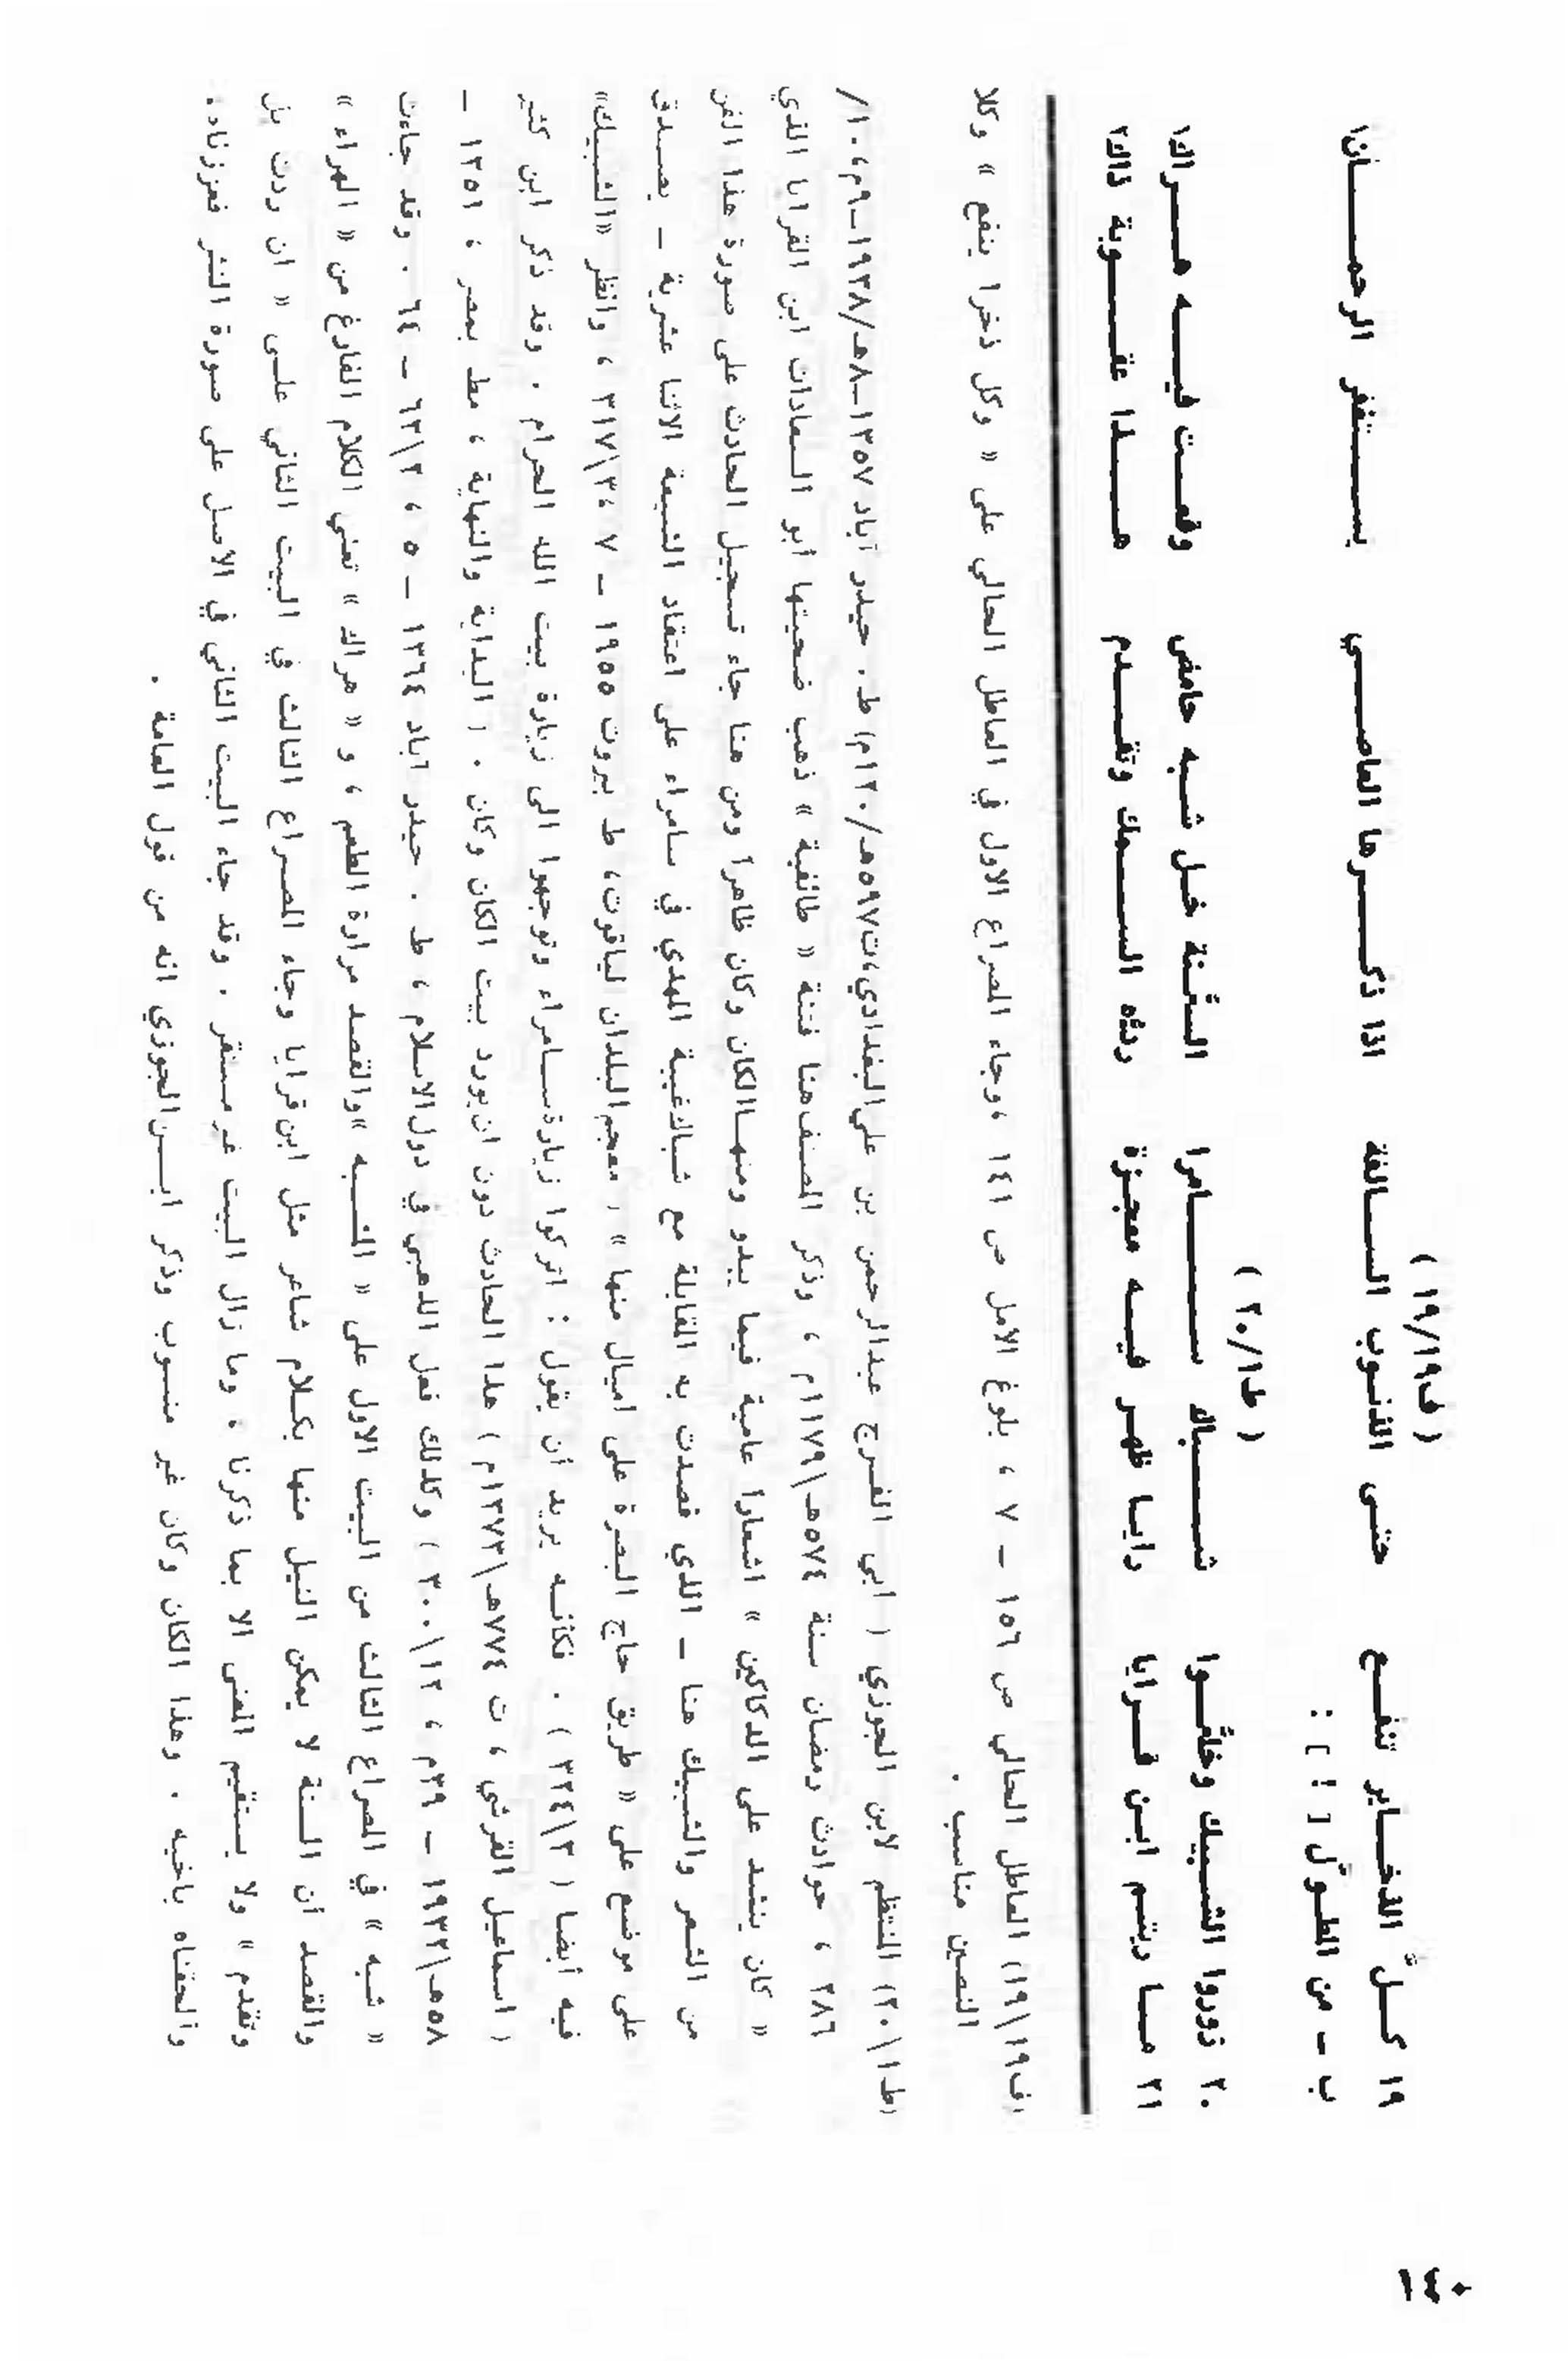 ( ف١٩/١٩ )
١٩ كـلَّ الذخـاير تنفـع حتـى الذنـوب السـالفة اذا ذكـــرها العاصـــي يســـتغفر الرحمـــان
ب – من المطـوَّل [ ! ] :
( ط٢٠/١ )
٢٠ زوروا الشـبيك وخلُّـوا شـــباك ســـامرا السنَّـة خـل شـبه حامض وقعـت فيـــه هـــراك
٢١ مــا ريتـم ابـن قـرايا رايـا ظهـر فيـه معجـزة ردتُه الســمك وتقــدم هــذا عقـــوبة ذاك
(ف١٩\١٩) العاطل الحالي ص ١٥٦ – ٧ ، بلوغ الامل ص ١٤١ ، وجاء المصراع الاول في العاطل الحالي على « وكل ذخرا ينفع » وكلا
النصين مناسب .
(ط١\٢٠) المنتظم لابن الجوزي ( ابي الفـرج عبدالرحمن بن علي البغدادي،ت٥٩٧هـ/١٢٠م) ط. حيدر آباد ١٣٥٧–٨هـ/١٩٣٨–٩م، ١٠/
٢٨٦ ، حوادث رمضان سنة ٥٧٤هـ\١١٧٩م ، وذكر المصنف هنا فتنة « طائفية » ذهب ضحيتها ابو السعادات ابن القرايا الذي
« كان ينشد على الدكاكين » اشعارا عامية فيما يبدو ومنهـا الكان وكان ظاهرا ومن هنا جاء تسجيل الحادث على صورة هذا الفن
من الشعر والشبيك هنا – الذي قصدت به المقابلة مع شباك غيبة المهدي في سامراء على اعتقاد الشيعة الاثنا عشرية – يصـدق
على موضع على « طريق حاج البصرة على اميال منها » ، معجم البلدان لياقوت، ط بيروت ١٩٥٥ – ٧ ،٣\٣١٧ ، وانظر «الشبيك»
فيه أيضا ( ٣\٣٢٤ ) . فكأنـه يريد أن يقول : اتركوا زيارة سـامراء وتوجهوا الى زيارة بيت الله الحرام . وقد ذكر ابن كثير
( اسماعيل القرشي ، ت ٧٧٤هـ\١٣٧٣م ) هذا الحادث دون ان يورد بيت الكان وكان . ( البداية والنهاية ، مط بمصر ، ١٣٥١ –
٥٨هـ\١٩٣٢ – ٣٩م ، ١٢\٣٠٠ ) وكذلك فعل الذهبي في دول الاسلام ، ط . حيدر آباد ١٣٦٤ – ٥ ، ٢\٦٣ – ٦٤ . وقد جاءت
« شبه » في المصراع الثالث من البيت الاول على « المشـبه »والقصد مرارة الطعم ، و « هراك » تعني الكلام الفارغ من « الهراء »
والقصد أن السـنة لا يمكن النيل منها بكـلام شاعر مثل ابن قرايا وجاء المصـراع الثالث في البيت الثاني علـى « ان ردت بل
وتقدم » ولا يستقيم المعنى الا بما ذكرنا ، وما زال البيت غير مستقر . وقد جاء البيت الثاني في الاصل على صورة النثر فعززناه.
وألحقناه باخيه . وهذا الكان وكان غير منسوب وذكر ابـن الجوزي انه من قول العامة .
١٤٠